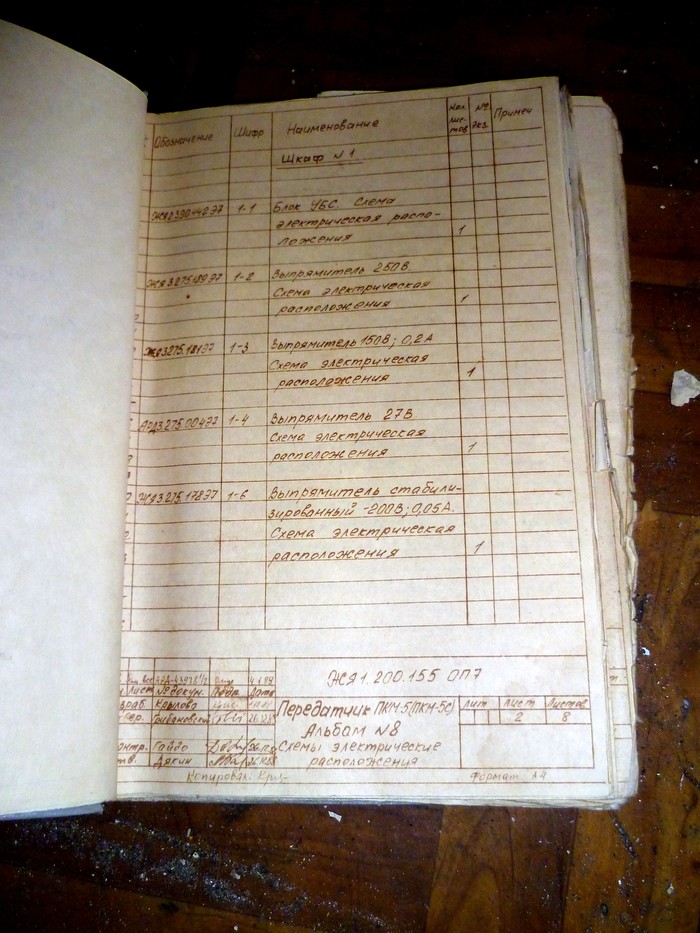 Обозначение Шифр Наименование Кол. лис-тов № экз. Примеч
Шкаф N 1
1-1 Блок УБС. Схема
электрическая распо-
ложения 1
ЖЯ3.275.189Э7 1-2 Выпрямитель 250В.
Схема электрическая
расположения 1
ЖЯ3.275.181Э7 1-3 Выпрямитель 150В; 0,2А
Схема электрическая
расположения 1
АРД3.275.004Э7 1-4 Выпрямитель 27В.
Схема электрическая
расположения 1
ЖЯ3.275.178Э7 1-6 Выпрямитель стабили-
зированный -200В; 0,05А.
Схема электрическая
расположения 1
ЖЯ1.200.155 ОП7
Лист № докум. Подр. Дата
Крылова
Передатчик ПКМ-5(ПКМ-5С)
Альбом N8
Схемы электрические
расположения
Лит Лист Листов
2 8
Гайдо
Дякин
Копировал: Формат А4